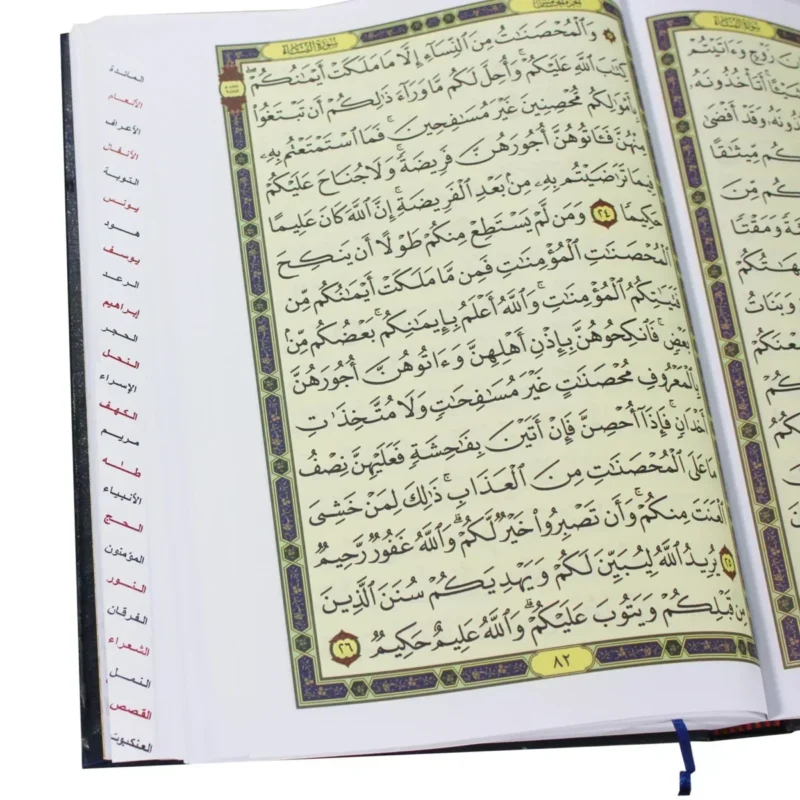 سُورَةُ النِّسَاءِ
زَوْجٍ وَءَاتَيْتُمْ
أَتَأْخُذُونَهُۥ
وَقَدْ أَفْضَىٰ
مِّيثَٰقًا
كُم مِّنَ
وَمَقْتًا
وَبَنَاتُ
سُورَةُ النِّسَاءِ
۞ وَٱلْمُحْصَنَٰتُ مِنَ ٱلنِّسَآءِ إِلَّا مَا مَلَكَتْ أَيْمَٰنُكُمْ ۖ
كِتَٰبَ ٱللَّهِ عَلَيْكُمْ ۚ وَأُحِلَّ لَكُم مَّا وَرَآءَ ذَٰلِكُمْ أَن تَبْتَغُوا۟
بِأَمْوَٰلِكُم مُّحْصِنِينَ غَيْرَ مُسَٰفِحِينَ ۚ فَمَا ٱسْتَمْتَعْتُم بِهِۦ
مِنْهُنَّ فَـَٔاتُوهُنَّ أُجُورَهُنَّ فَرِيضَةً ۚ وَلَا جُنَاحَ عَلَيْكُمْ
فِيمَا تَرَٰضَيْتُم بِهِۦ مِنۢ بَعْدِ ٱلْفَرِيضَةِ ۚ إِنَّ ٱللَّهَ كَانَ عَلِيمًا
حَكِيمًا ٢٤ وَمَن لَّمْ يَسْتَطِعْ مِنكُمْ طَوْلًا أَن يَنكِحَ
ٱلْمُحْصَنَٰتِ ٱلْمُؤْمِنَٰتِ فَمِن مَّا مَلَكَتْ أَيْمَٰنُكُم مِّن
فَتَيَٰتِكُمُ ٱلْمُؤْمِنَٰتِ ۚ وَٱللَّهُ أَعْلَمُ بِإِيمَٰنِكُم ۚ بَعْضُكُم مِّنۢ
بَعْضٍ ۚ فَٱنكِحُوهُنَّ بِإِذْنِ أَهْلِهِنَّ وَءَاتُوهُنَّ أُجُورَهُنَّ
بِٱلْمَعْرُوفِ مُحْصَنَٰتٍ غَيْرَ مُسَٰفِحَٰتٍ وَلَا مُتَّخِذَٰتِ
أَخْدَانٍ ۚ فَإِذَآ أُحْصِنَّ فَإِنْ أَتَيْنَ بِفَٰحِشَةٍ فَعَلَيْهِنَّ نِصْفُ
مَا عَلَى ٱلْمُحْصَنَٰتِ مِنَ ٱلْعَذَابِ ۚ ذَٰلِكَ لِمَنْ خَشِىَ
ٱلْعَنَتَ مِنكُمْ ۚ وَأَن تَصْبِرُوا۟ خَيْرٌ لَّكُمْ ۗ وَٱللَّهُ غَفُورٌ رَّحِيمٌ
٢٥ يُرِيدُ ٱللَّهُ لِيُبَيِّنَ لَكُمْ وَيَهْدِيَكُمْ سُنَنَ ٱلَّذِينَ
مِن قَبْلِكُمْ وَيَتُوبَ عَلَيْكُمْ ۗ وَٱللَّهُ عَلِيمٌ حَكِيمٌ ٢٦
٨٢
المائدة
الأنعام
الأعراف
الأنفال
التوبة
يونس
هود
يوسف
الرعد
إبراهيم
الحجر
النحل
الإسراء
الكهف
مريم
طه
الأنبياء
الحج
المؤمنون
النور
الفرقان
الشعراء
النمل
القصص
العنكبوت